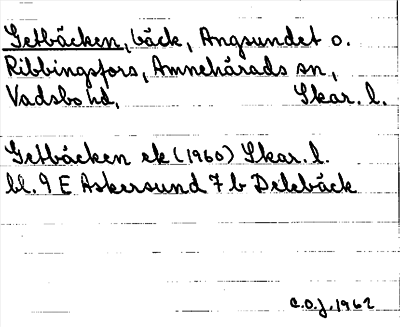 Getbäcken, bäck, Angsundet o.
Ribbingsfors, Amnehärads sn,
Vadsbo hd, Skar. l.
Getbäcken ek (1960) Skar. l.
bl. 9 E Askersund 7 b Delebäck
C.O.J. 1962